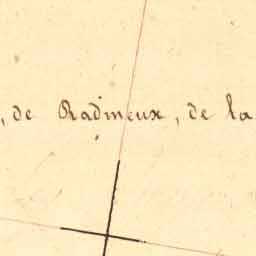 , de Radineux, de la